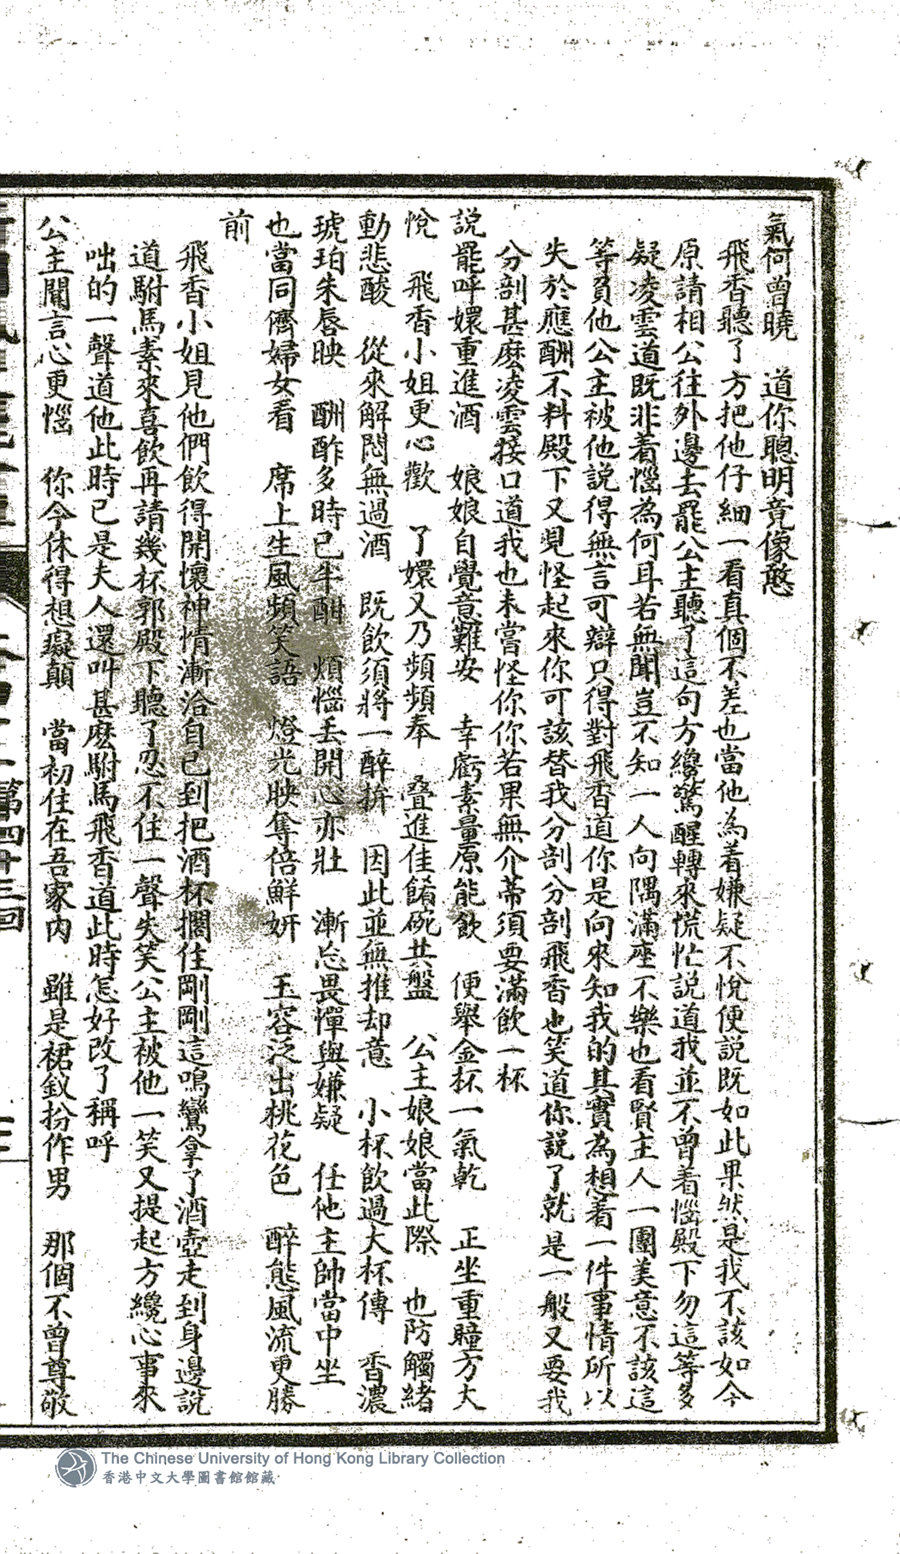 氣何曾曉　道你聰明竟像憨
飛香聽了方把他仔細一看真個不差也當他為着嫌疑不悅便説既如此果然是我不該如今
原請相公往外邊去罷公主聽了這句方纔驚醒轉來慌忙説道我並不曾着惱殿下勿這等多
疑凌雲道既非着惱為何耳若無聞豈不知一人向隅滿座不樂也看賢主人一團美意不該這
等負他公主被他説得無言可辯只得對飛香道你是向來知我的其實為想着一件事情所以
失於應酬不料殿下又見怪起來你可該替我分剖分剖飛香也笑道你説了就是一般又要我
分剖甚麽凌雲接口道我也未當怪你你若果無介蒂須要滿飲一杯
説罷呼嬛重進酒　娘娘自覺意難安　幸虧素量原能飲　便舉金杯一氣乾　正坐重瞳方大
悅　飛香小姐更心歡　了嬛又乃頻頻奉　叠進佳餚碗共盤　公主娘娘當此際　也防觸緒
動悲酸　從來解悶無過酒　既飲須將一醉拚　因此並無推却意　小杯飲過大杯傳　香濃
琥珀朱唇映　酬酢多時已半酣　煩惱丢開心亦壯　漸忘畏憚與嫌疑　任他主帥當中坐
也當同儕婦女看　席上生風頻笑語　燈光映奪倍鮮妍　玉容泛出桃花色　醉態風流更勝
前
飛香小姐見他們飲得開懷神情漸洽自己到把酒杯擱住剛剛這鳴鸞拿了酒壺走到身邊説
道駙馬素來喜飲再請幾杯郭殿下聽了忍不住一聲失笑公主被他一笑又提起方纔心事來
咄的一聲道他此時已是夫人還叫甚麽駙馬飛香道此時怎好改了稱呼
公主聞言心更惱　你今休得想癡顛　當初住在吾家內　雖是裙釵扮作男　那個不曾尊敬
第四十三回
The Chinese University of Hong Kong Library Collection
香港中文大學圖書館館藏